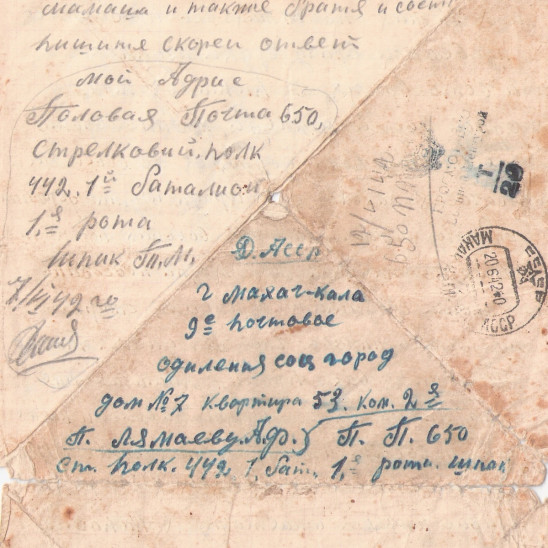 мамаша и также братя и сест
пишитя скорей ответ
мой Адрис
Половая Почта 650,
Стрелковий. полк
442. 1й баталион
1,я рота
Шпак П.М.
7/VI 42 го
Д. Асср
г махач-кала
9е почтовое
одиления соц город
дом №7 квартира 53. ком. 2я
П. Лямаеву. А.Ф. П. П. 650
ст. полк. 442 1, бат. 1,я рота. шпак
МАХАЧ
20 6 42
СССР